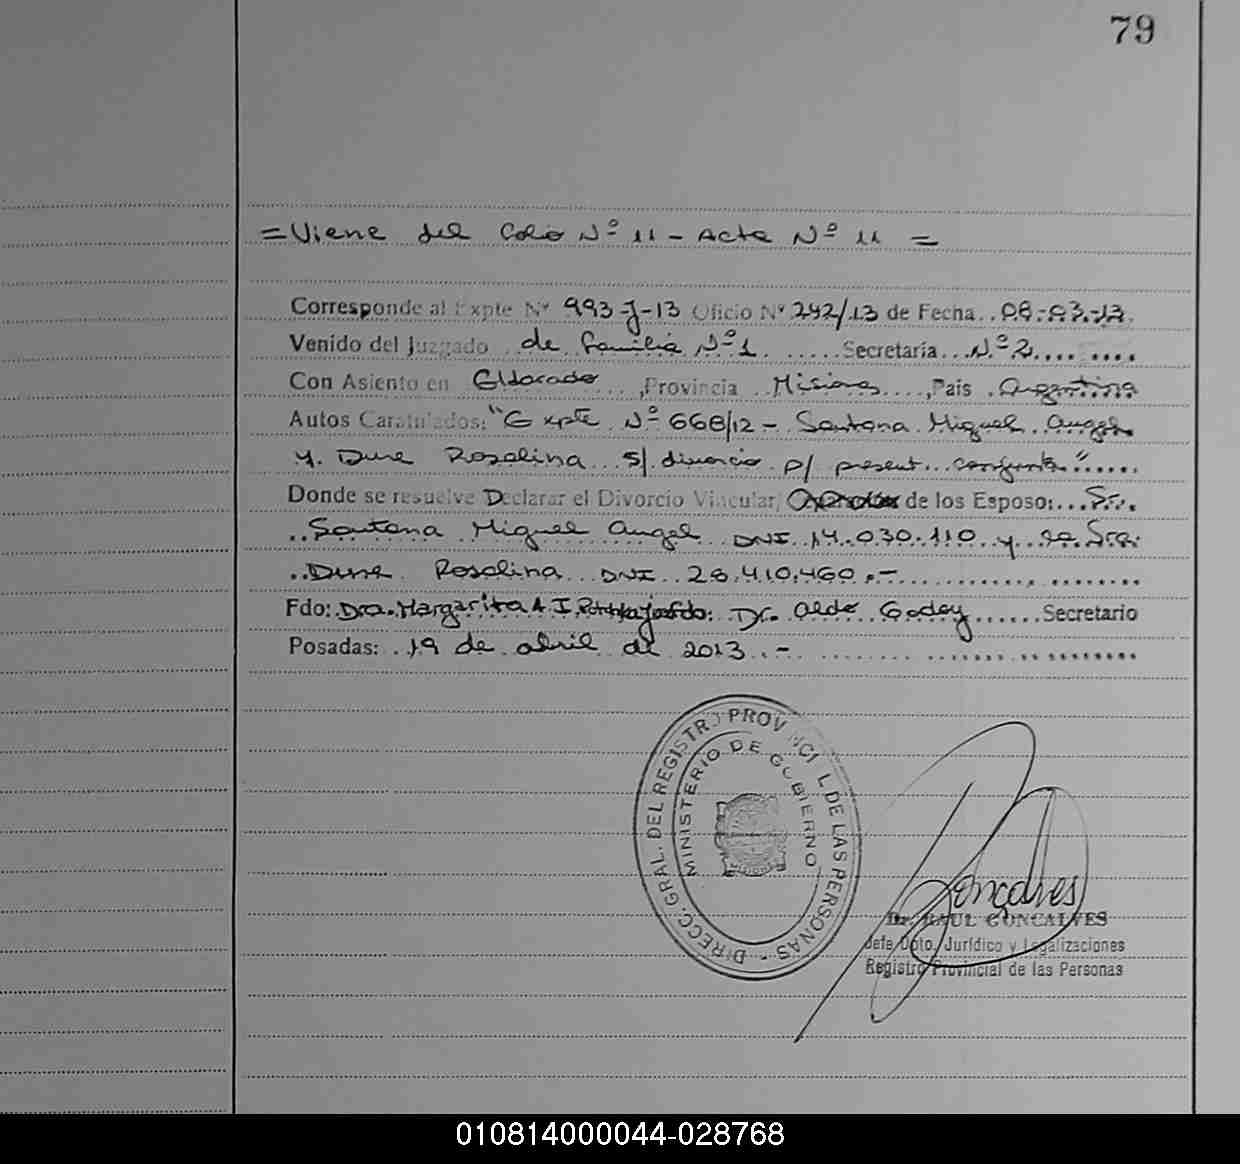 79
= Viene del Folio Nº 11 - Acta Nº 11 =
Corresponde al Expte Nº 993-J-13 Oficio Nº 242/13 de Fecha 08-03-13
Venido del Juzgado de familia Nº 1 Secretaría Nº 2
Con Asiento en Eldorado, Provincia Misiones, País Argentina
Autos Caratulados: "Expte Nº 668/12 - Santana Miguel Angel
y Dure Rosalina s/ divorcio p/ present. conjunta"
Donde se resuelve Declarar el Divorcio Vincular/ de los Esposo: Sr.
Santana Miguel Angel DNI 14.030.110 y la Sra.
Dure Rosalina DNI 28.410.460.-
Fdo: Dra. Margarita A. I. Fdo: Dr. Aldo Godoy Secretario
Posadas: 19 de abril de 2013.-
DIRECC. GRAL. DEL REGISTRO PROVINCIAL DE LAS PERSONAS -
MINISTERIO DE GOBIERNO
Goncalves
Dr. RAUL GONCALVES
Jefe Dpto. Jurídico y Legalizaciones
Registro Provincial de las Personas
010814000044-028768